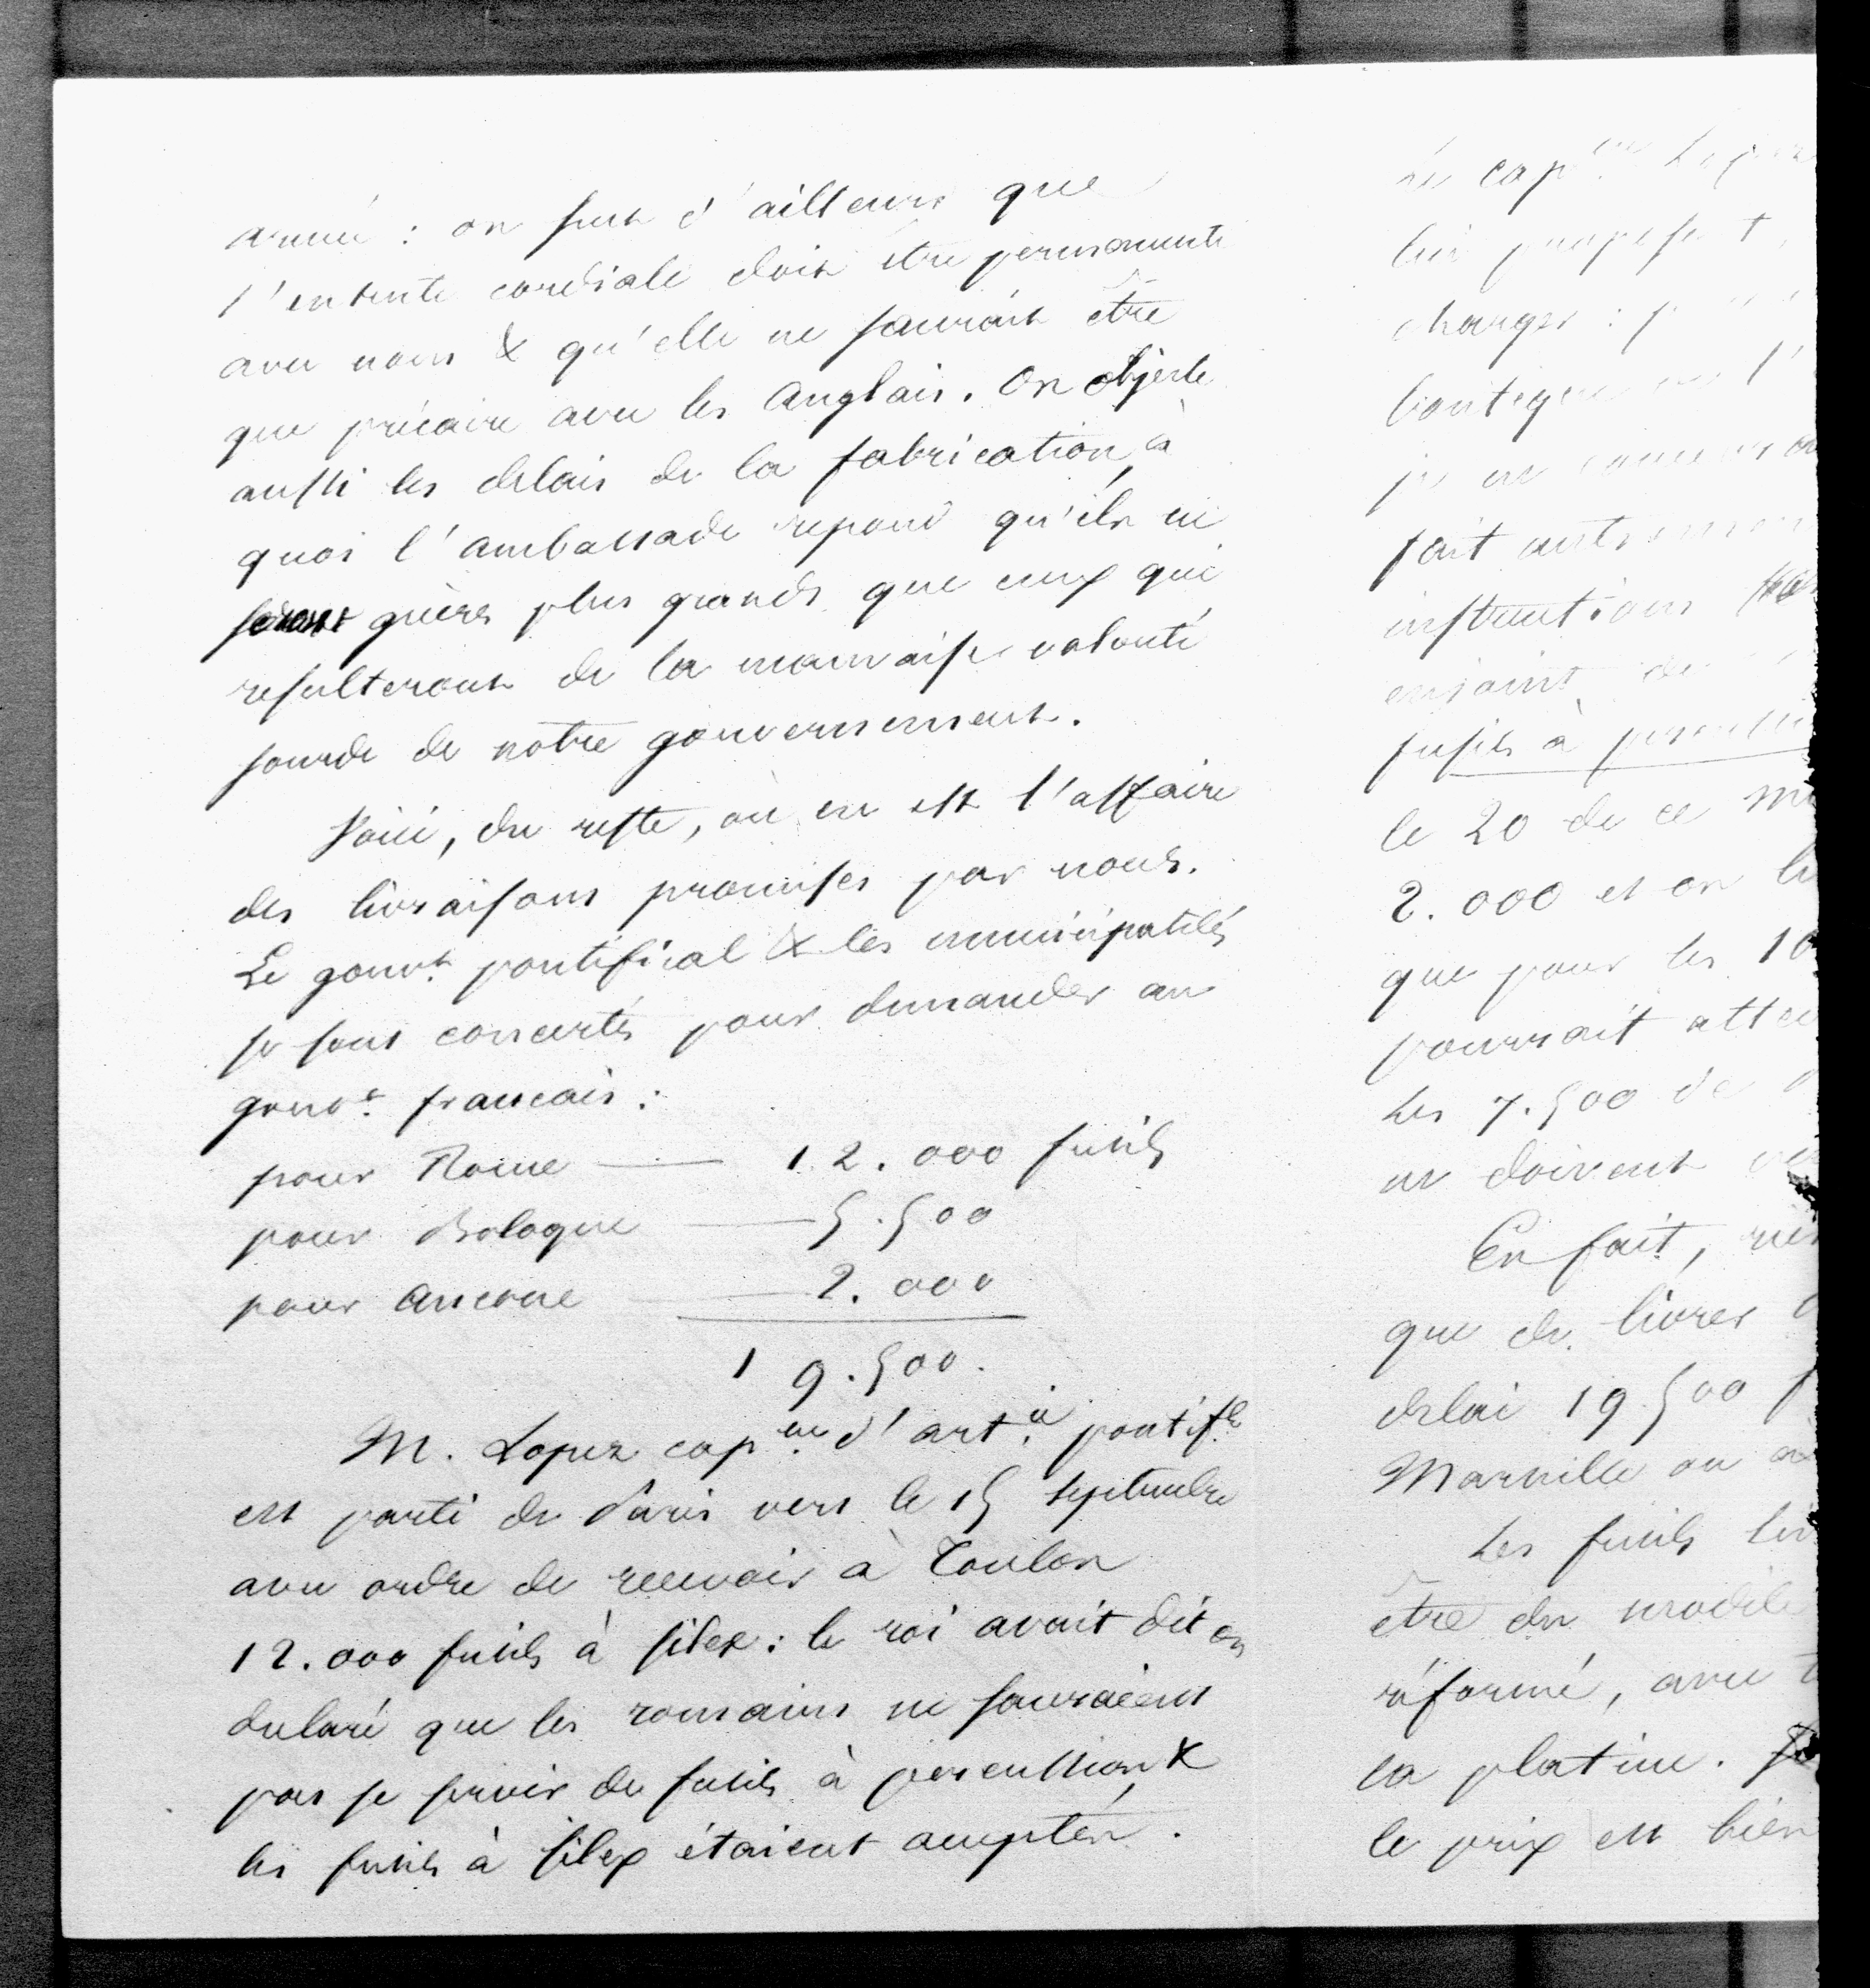 armée : on sent d'ailleurs que
l'entente cordiale doit être permanente
avec nous & qu'elle ne saurait être
que précaire avec les Anglais. On objecte
aussi les delais de la fabrication, à
quoi l'ambassade repond qu'ils ne
seront guères plus grands que ceux qui
resulteront de la mauvaise volonté
sourde de notre gouvernement.
Voici, du reste, où en est l'affaire
des livraisons promises par nous.
Le gouvt. pontifical & les municipalités
se sont concertés pour demander au
gouvt. francais :
pour Rome — 12.000 fusils
pour Bologne — 5.500
pour Ancone — 2.000
19.500.
M. Lopez capne. d'artie. pontifle
est parti de Paris vers le 15 septembre
avec ordre de recevoir à Toulon
12.000 fusils à silex : le roi avait dit on
declaré que les romains ne sauraient
pas se servir de fusils à percussion &
les fusils à silex étaient acceptés.
le capne
lui
changer :
boutique l'
je
fait autrement
instructions
enjoint de
fusils à
le 20 de ce
2.000 et on
que pour les 10
pourrait
Les 7.500 de
ne doivent
En fait,
que de livrer
delai 19.500
Marseille ou a
Les fusils
être du modèle
réformé, avec
la platine.
le prix est bien